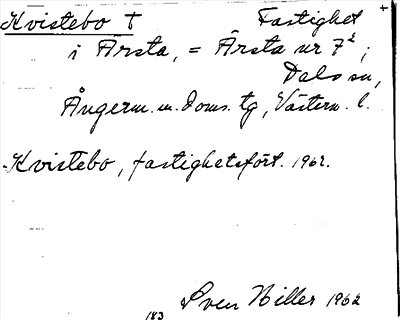 Kvistebo † Fastighet
i Ärsta, = Ärsta nr 7²;
Dals sn,
Ångerm. m. doms. tg, Västern. l.
Kvistebo, fastighetsfört. 1962.
Sven Hiller 1962
183